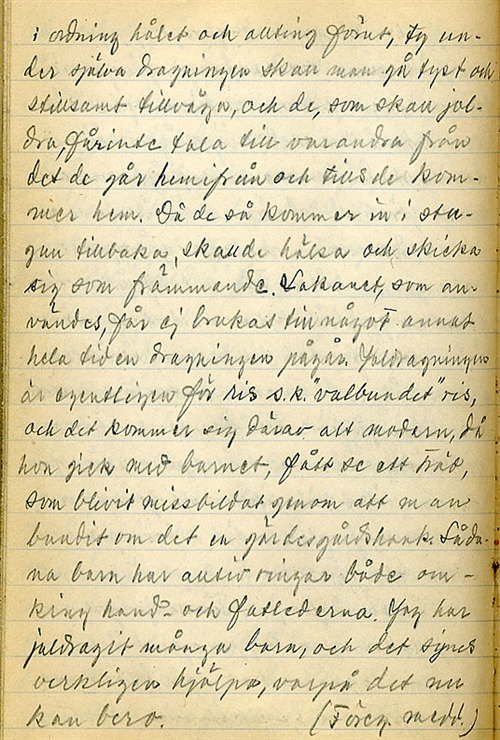 i ordning hålet och allting förut, ty un-
der själva dragningen skall man gå tyst och
stillsamt tillväga, och de, som skall jol-
dra, får inte tala till varandra från
det de går hemifrån och tills de kom-
mer hem. Då de så kommer in i stu-
gan tillbaka, skall de hälsa och skicka
sig som främmande. Lakanet, som an-
vändes, får ej brukas till något annat
hela tiden dragningen pågår. Joldragningen
är egentligen för ris s.k. "valbundet" ris,
och det kommer sig därav att modern, då
hon gick med barnet, fått se ett träd,
som blivit missbildat genom att man
bundit om det en gärdesgårdshank. Såda-
na barn har antiv ringar både om-
kring hand- och fotlederna. Jag har
joldragit många barn, och det synes
verkligen hjälpa, varpå det nu
kan bero. (Föreg. medd.)